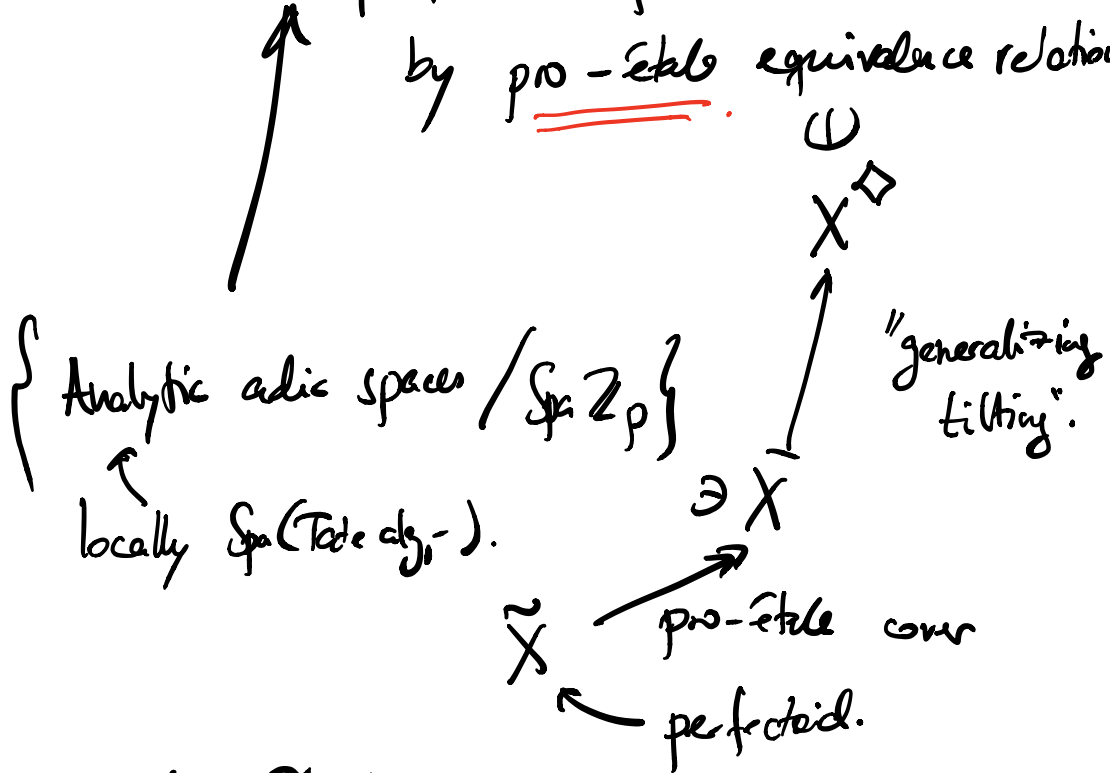 by pro-étale equivalence relation
X^◇
"generalizing tilting".
{ Analytic adic spaces / Spa ℤ_p } ∋ X
locally Spa(Tate alg, -).
X̃
pro-étale cover
perfectoid.